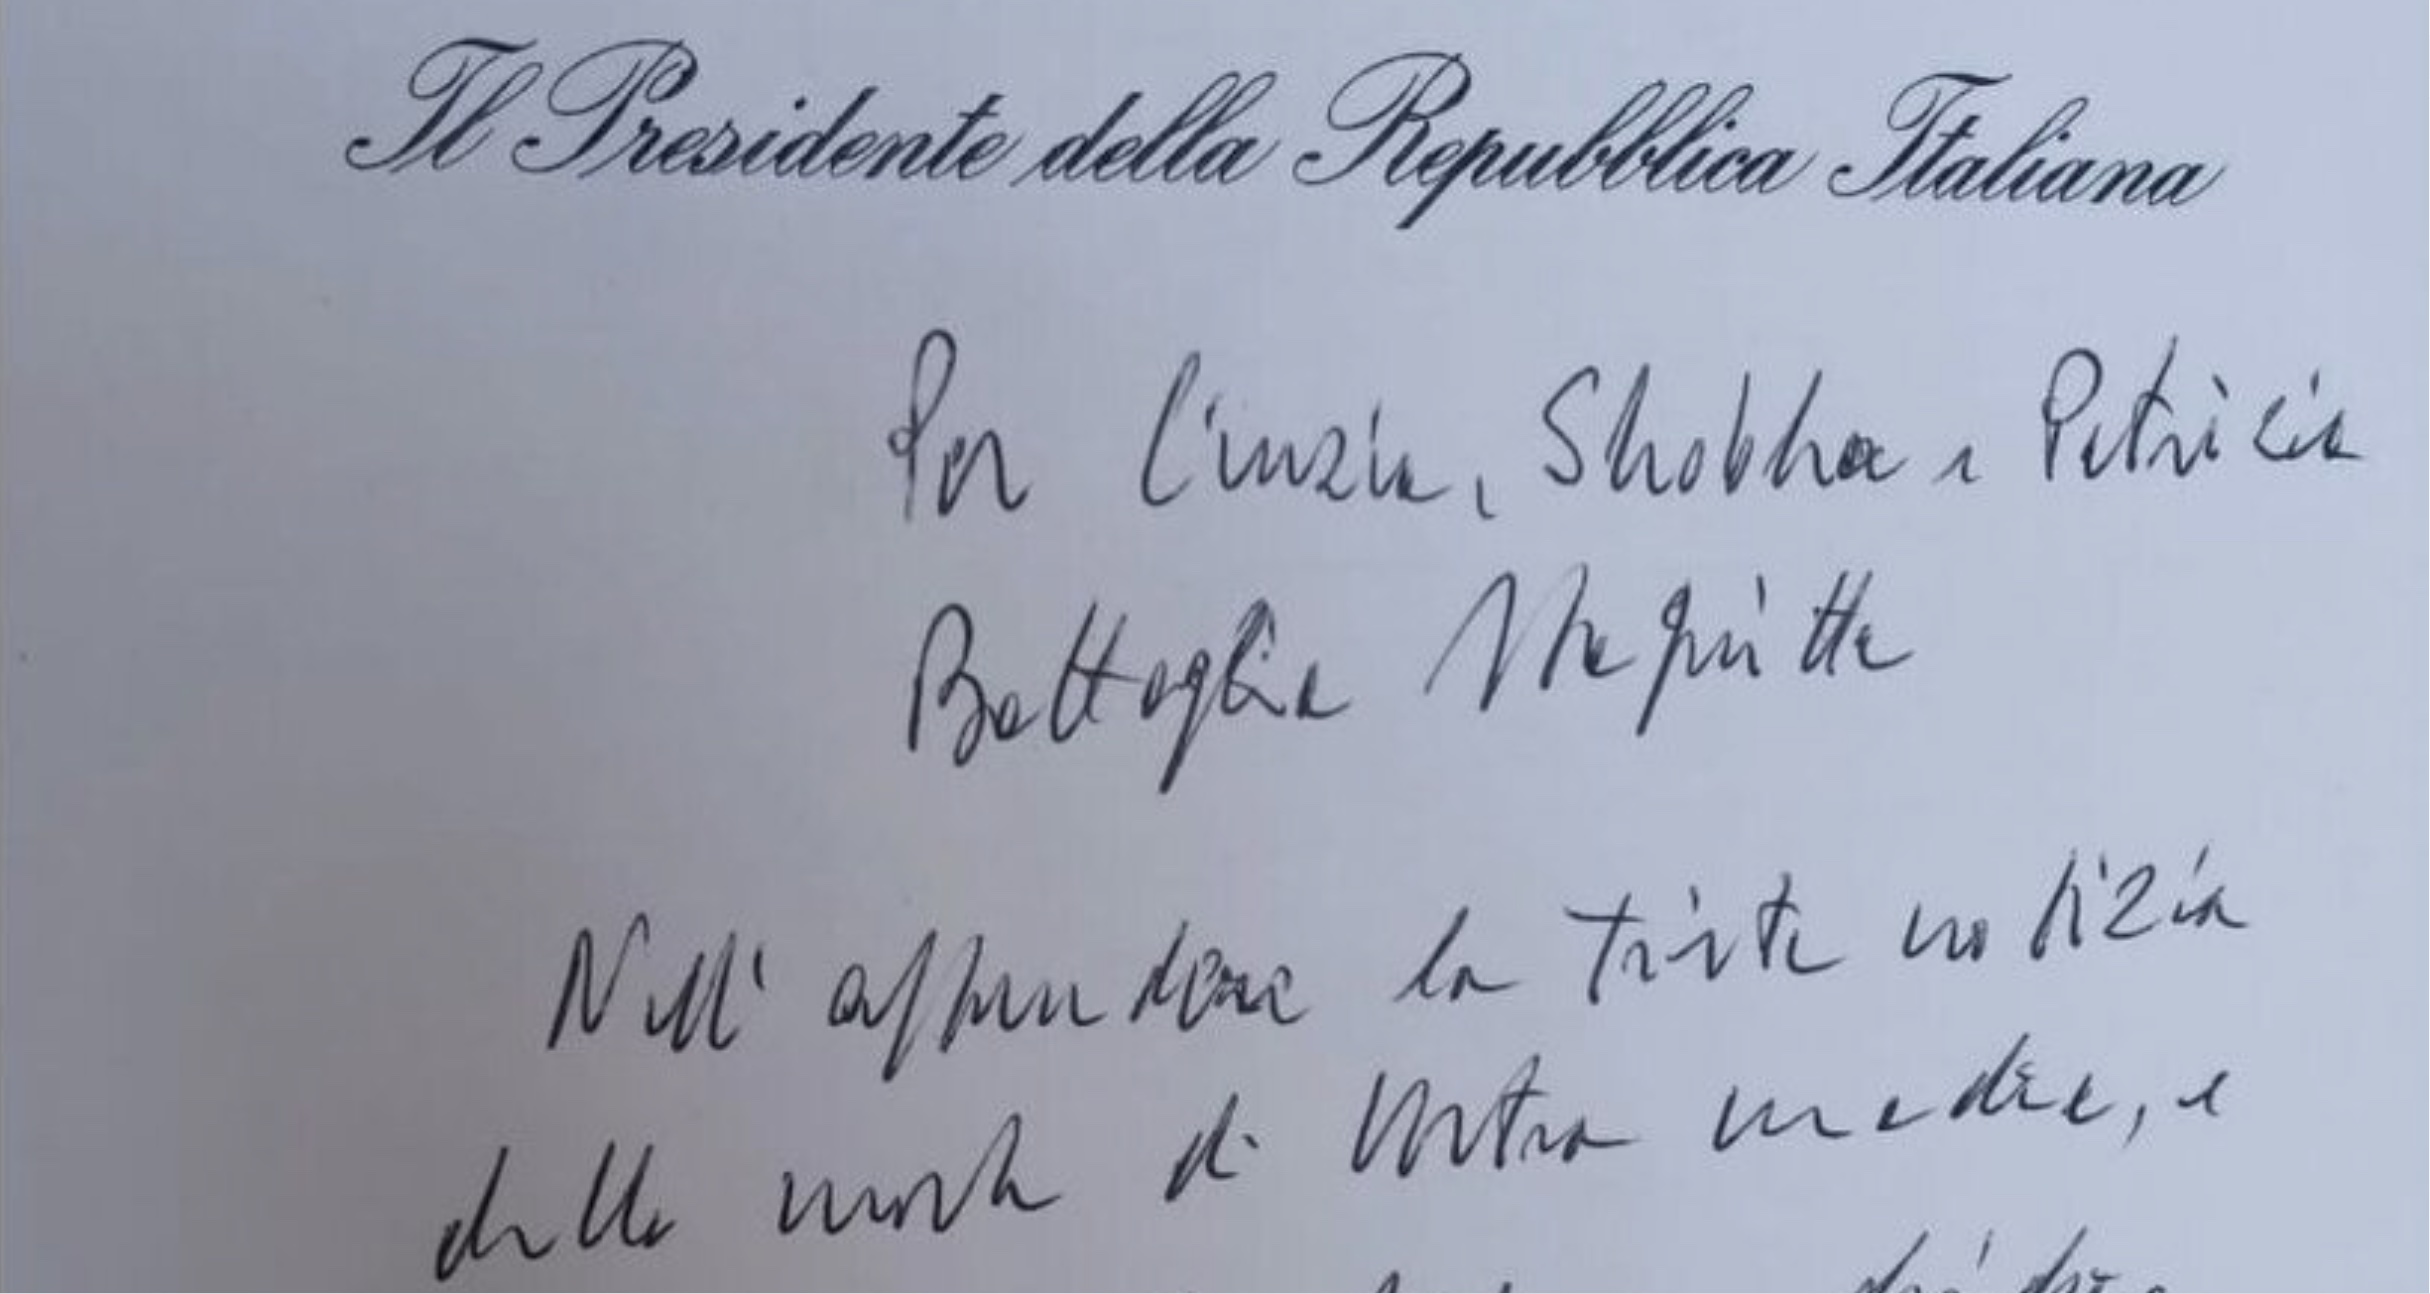 Il Presidente della Repubblica Italiana
Per Cinzia, Shobha e Patrizia
Battaglia Stagnitta
Nell' apprendere la triste notizia
della morte di Vostra madre, e